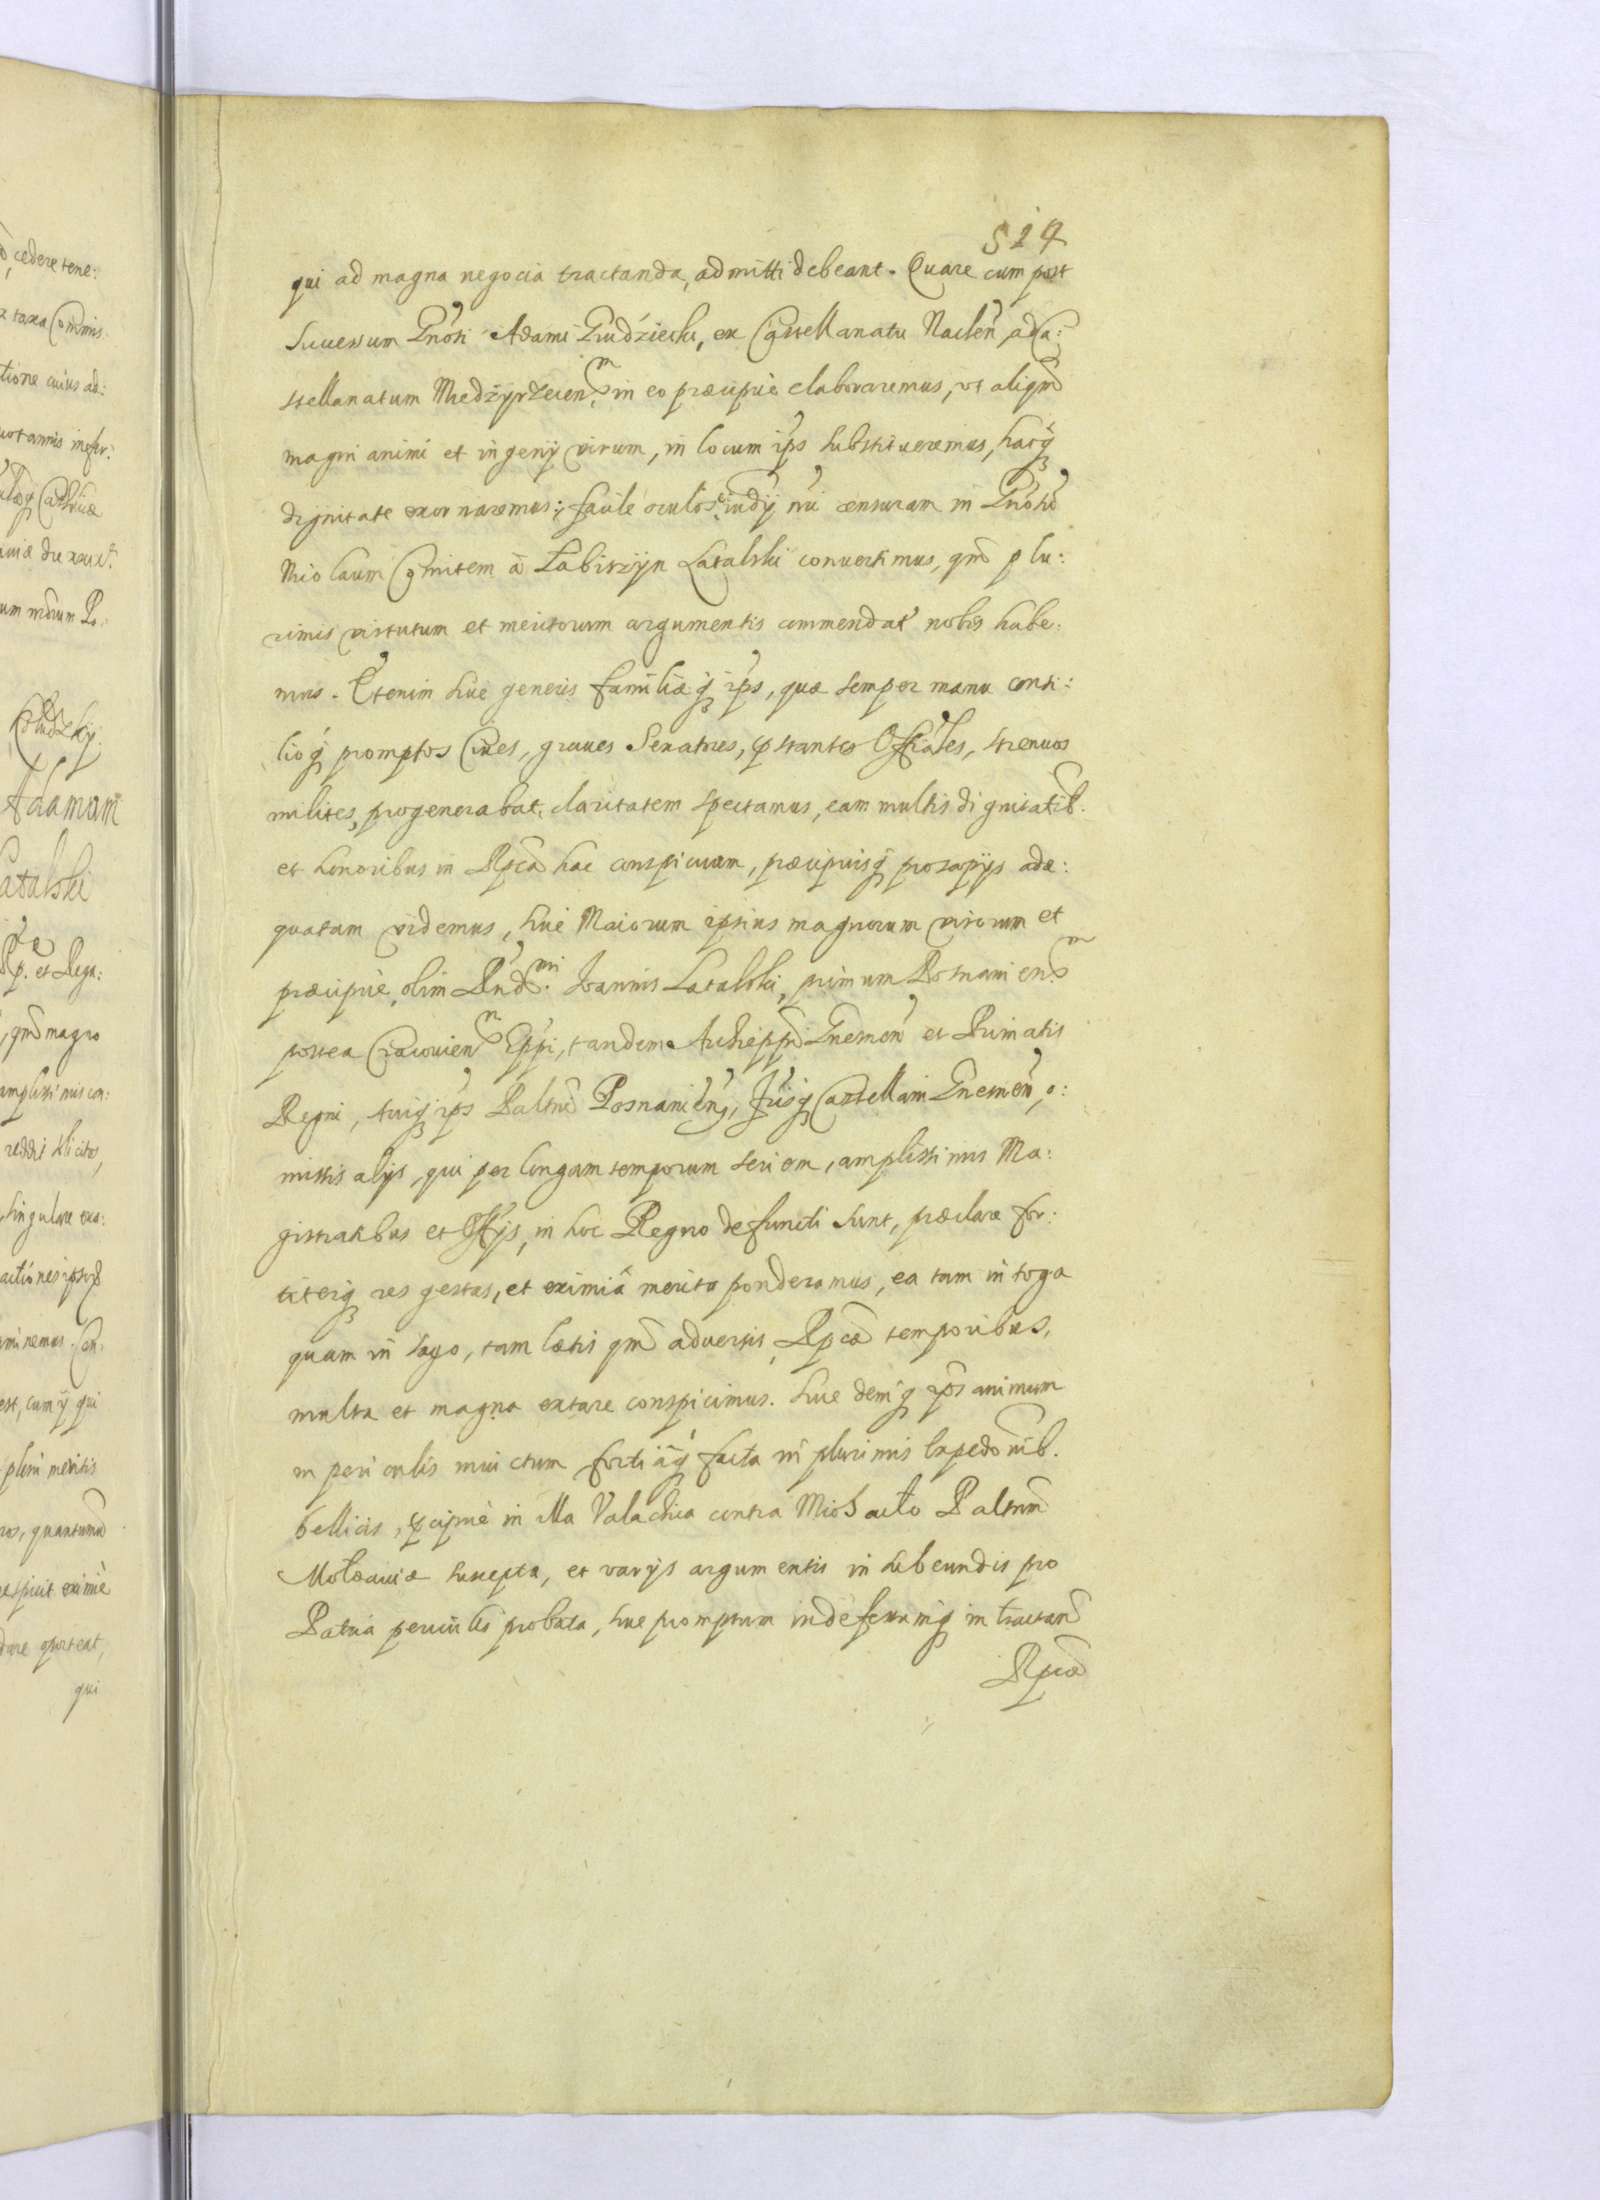 cedere tene:
taxa Com̃mis
tione cuius ad:
um
Adamum
Latalski
et Rega:
qm̃ magno
amplissimis con:
reddit
singulare exa:
actiones
est, cum ij qui
pleni meritis
quantum
eximiè
oporteat,
qui
514
qui ad magna negocia tractanda, admitti debeant. Quare cum post
sucessum Gnõsi Adami Grudzieski, ex Castellanatu Naclen̄, ad Ca:
stellanatum Miedzyrzecien̄. in eo præcipuè elaboraremus, vt aliqm̃
magni animi et ingenij virum, in locum ip̄s substitueremus, hacq̃
dignitate exornaremus; facilè oculos et iudij nr̃i censuram in Gnõsũ
Nicolaum Comitem à Łabiszyn Latalski conuertimus, qm̃ plu:
rimis virtutum et meritorum argumentis commendat̃ nobis habe:
mus. Etenim siue generis familiæq̃ ip̄s, quæ semper manu consi:
lioq̃ promptos Ciues, graues Senatores, p̃stantes Offiales, strenuos
milites, progenerabat, claritatem spectamus, eam multis dignitatib.
et honoribus in Rp̃ca hac conspicuam, præcipuisq̃ prosapijs adæ:
quatam videmus, siue Maiorum ipsius magnorum virorum et
præcipuè, olim Rnd̃mi. Joannis Latalski, primum Posnanien̄
postea Cracouien̄ Epp̃i, tandem Archiepp̃i Gnesnen̄ et Primatis
Regni, Auiq̃ ip̄s Palt̃ni Posnanien̄, Pr̃isq̃ Castellani Gnesnen̄, o:
missis alijs, qui per longam temporum seriem, amplissimis Ma:
gistratibus et Offijs, in hoc Regno defuncti sunt, præclare for:
titerq̃ res gestas, et eximia merita ponderamus, ea tam in toga
quam in sago, tam lætis qm̃ aduersis, Rp̃cæ temporibus,
multa et magna extare conspicimus. siue deniq̃ ip̄s animum
in periculis inuictum fortiaq̃ facta in plurimis Expedõnib.
bellicis, p̃cipuè in illa Valachica contra Michaelo Palt̃num
Moldauiæ suscepta, et varijs argumentis in subeundis pro
Patria periculis probata, siue promptum indefessumq̃ in tractan̄
Rp̃cæ